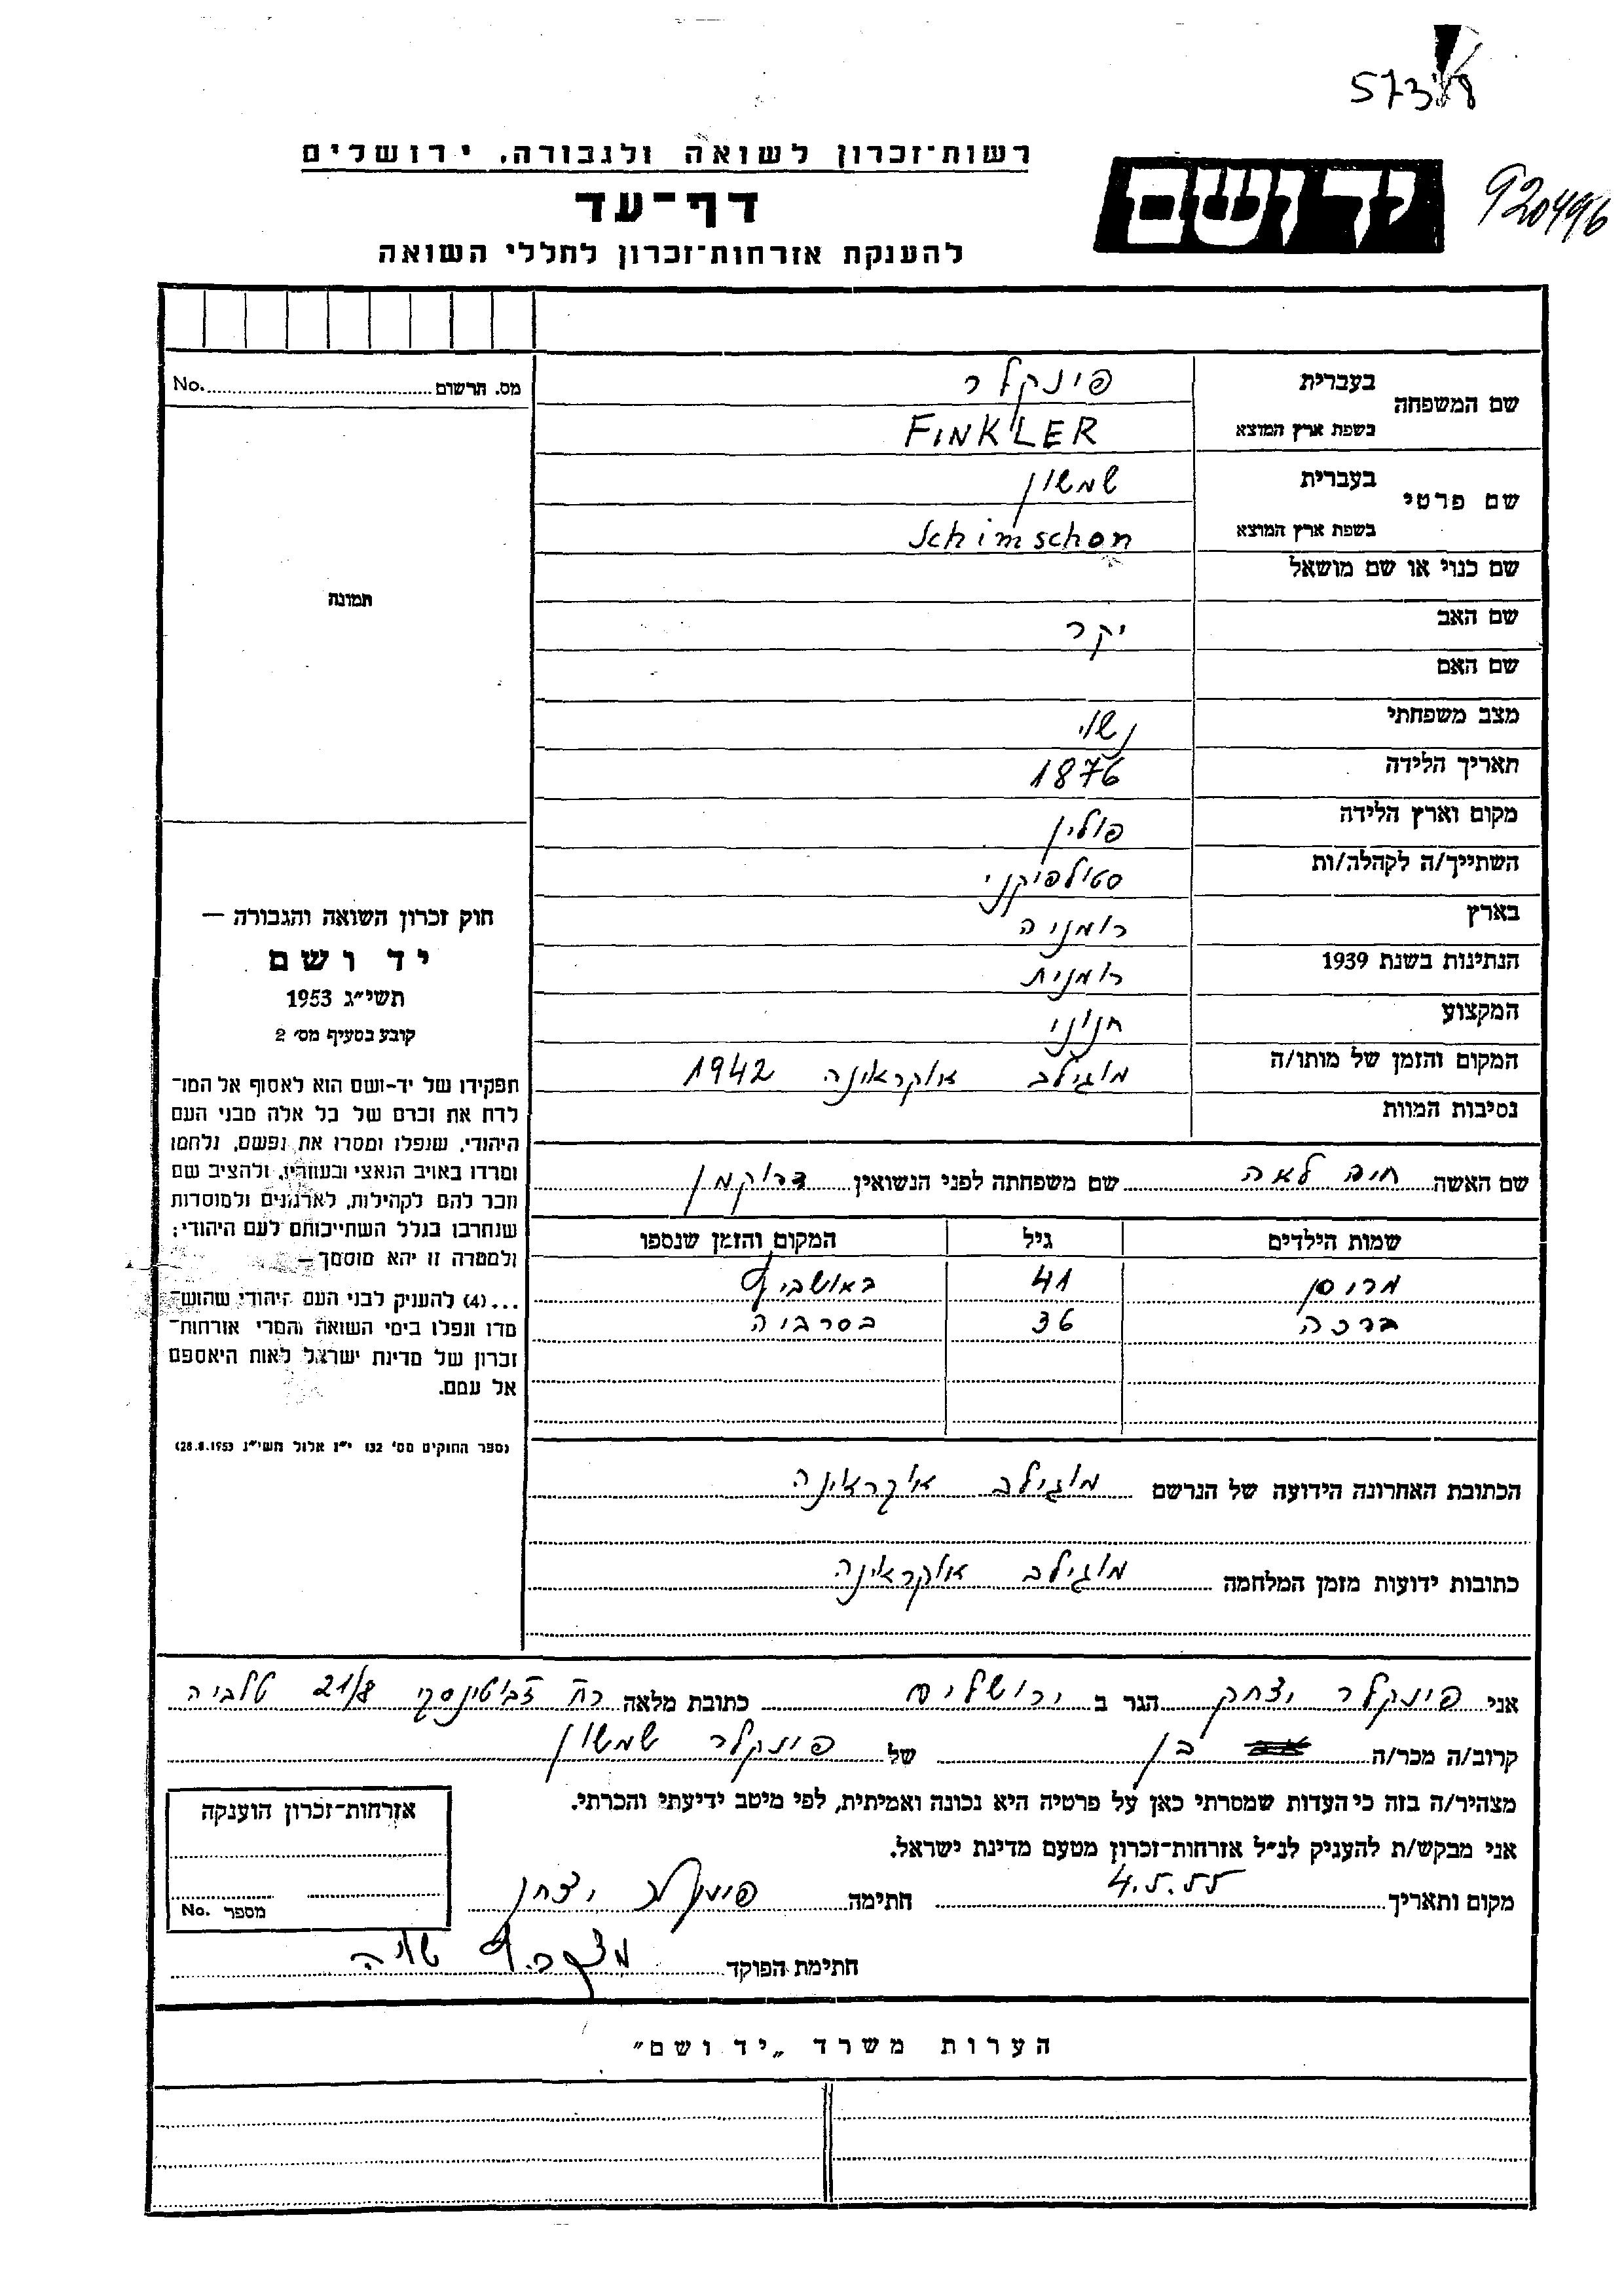 573
920496
רשות־זכרון לשואה ולגבורה, ירושלים
יד ושם
דף־עד
להענקת אזרחות־זכרון לחללי השואה
מס. הרשום No.
תמונה
שם המשפחה
בעברית פינקלר
בשפת ארץ המוצא FINKLER
שם פרטי
בעברית שמשון
בשפת ארץ המוצא Schimschon
שם כנוי או שם מושאל
שם האב יקר
שם האם
מצב משפחתי נשוי
תאריך הלידה 1876
מקום וארץ הלידה פולין
השתייך/ה לקהלה/ות סטילפיקני
בארץ רומניה
הנתינות בשנת 1939 רומנית
המקצוע חנוני
המקום והזמן של מותו/ה מוגילב אוקראינה 1942
נסיבות המוות
שם האשה חיה לאה שם משפחתה לפני הנשואין דרוקמן
שמות הילדים גיל המקום והזמן שנספו
41 באושביץ
ברכה 36 בסרביה
הכתובת האחרונה הידועה של הנרשם מוגילב אוקראינה
כתובות ידועות מזמן המלחמה מוגילב אוקראינה
חוק זכרון השואה והגבורה —
יד ושם
תשי״ג 1953
קובע בסעיף מס׳ 2
תפקידו של יד-ושם הוא לאסוף אל המו־
לדת את זכרם של כל אלה מבני העם
היהודי, שנפלו ומסרו את נפשם, נלחמו
ומרדו באויב הנאצי ובעוזריו, ולהציב שם
וזכר להם לקהילות, לארגונים ולמוסדות
שנחרבו בגלל השתייכותם לעם היהודי;
ולמטרה זו יהא מוסמך —
...(4) להעניק לבני העם היהודי שהוש־
מדו ונפלו בימי השואה והמרי אזרחות־
זכרון של מדינת ישראל לאות היאספם
אל עמם.
(ספר החוקים מס׳ 132 י״ז אלול תשי״ג 28.8.1953)
אני פינקלר יצחק הגר ב ירושלים כתובת מלאה רח ז׳בוטינסקי 21/8 טלביה
קרוב/ה מכר/ה בן של פינקלר שמשון
מצהיר/ה בזה כי העדות שמסרתי כאן על פרטיה היא נכונה ואמיתית, לפי מיטב ידיעתי והכרתי.
אני מבקש/ת להעניק לנ״ל אזרחות־זכרון מטעם מדינת ישראל.
מקום ותאריך 4.5.55 חתימה פינקלר יצחק
חתימת הפוקד
אזרחות־זכרון הוענקה
מספר No.
הערות משרד „יד ושם״